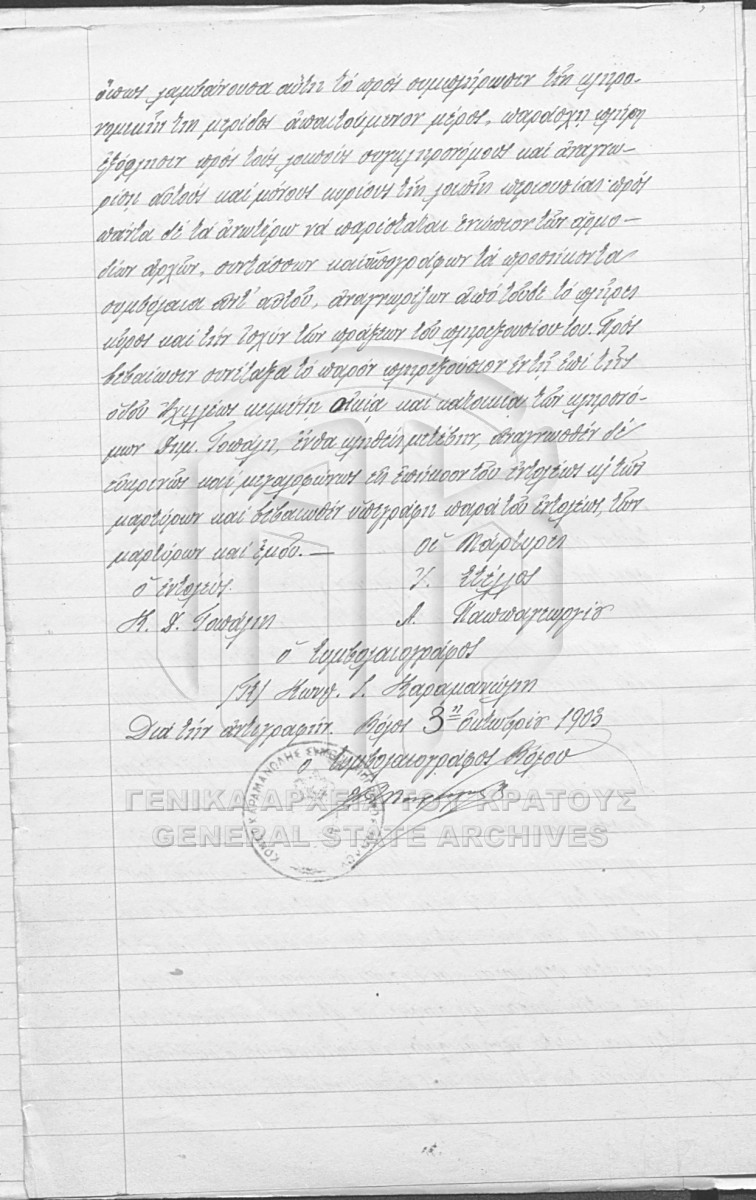 ὅπως λαμβάνουσα αὕτη τό πρός συμπλήρωσιν τῆς κληρο-
νομικῆς της μερίδος ἀπαιτούμενον μέρος, παράσχῃ πλήρη
ἐξόφλησιν πρός τούς λοιπούς συγκληρονόμους καί ἀναγνω-
ρίσῃ αὐτούς καί μόνους κυρίους τῆς λοιπῆς περιουσίας· πρός
πάντα δέ τά ἀνωτέρω νά παρίσταται ἐνώπιον τῶν ἁρμο-
δίων ἀρχῶν, συντάσσων καί ὑπογράφων τά προσήκοντα
συμβόλαια ἀντ' αὐτοῦ, ἀναγνωρίζων ἀπό τοῦδε τό πλῆρες
κῦρος καί τήν ἰσχύν τῶν πράξεων τοῦ πληρεξουσίου του. Πρός
βεβαίωσιν συνέταξα τό παρόν πληρεξούσιον ἐν τῇ ἐπί τῆς
ὁδοῦ Ἀχιλλέως κειμένῃ οἰκίᾳ καί κατοικίᾳ τῶν κληρονό-
μων Δημ. Τοπάλη, ἔνθα κληθείς μετέβην, ἀναγνωσθέν δέ
εὐκρινῶς καί μεγαλοφώνως εἰς ἐπήκοον τοῦ ἐντολέως κ τῶν
μαρτύρων καί βεβαιωθέν ὑπεγράφη παρά τοῦ ἐντολέως, τῶν
μαρτύρων καί ἐμοῦ. — Οἱ Μάρτυρες
ὁ ἐντολεύς. Στέλλος
Κ. Δ. Τοπάλης Λ. Παππαγεωργίου
ὁ Συμβολαιογράφος
Κωνστ. Ι. Καραμανώλης
Διά τήν ἀντιγραφήν. Βόλος 3ῃ Ὀκτωβρίου 1903
ὁ Συμβολαιογράφος Βόλου
ΓΕΝΙΚΑ ΑΡΧΕΙΑ ΤΟΥ ΚΡΑΤΟΥΣ
GENERAL STATE ARCHIVES